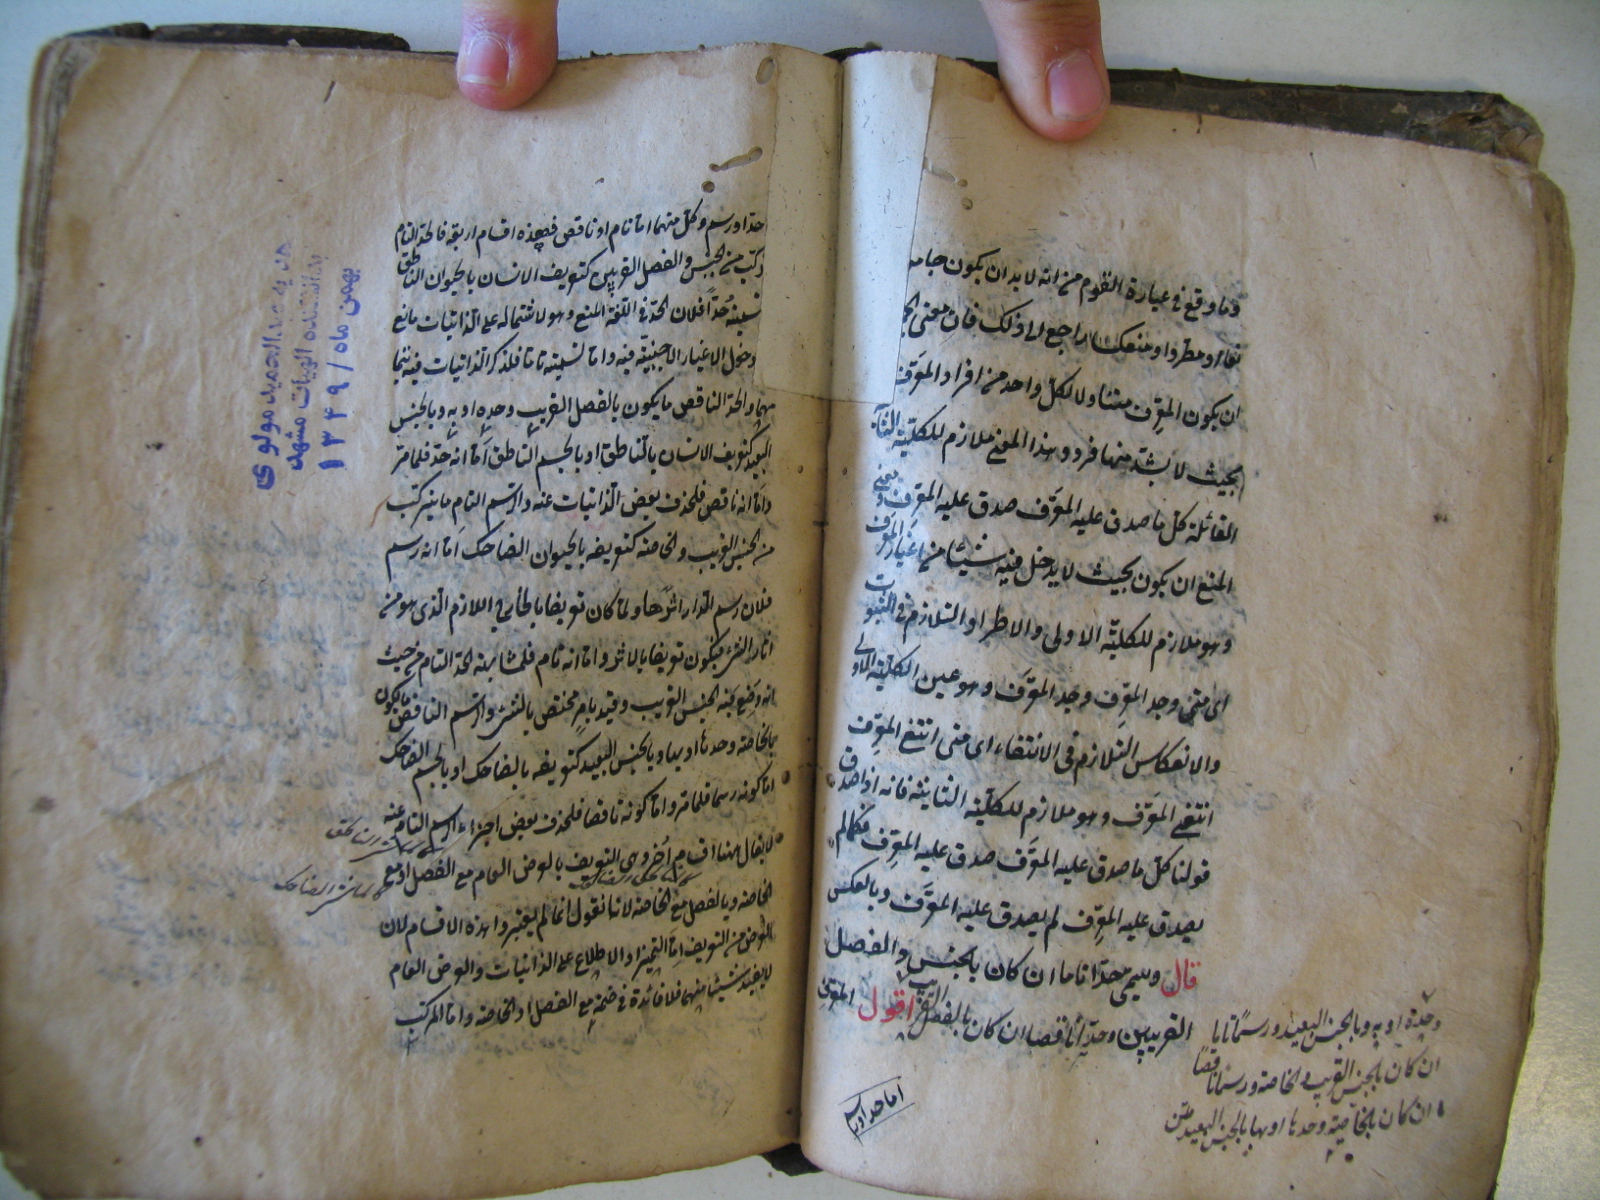 وما وقع في عبارة القوم من انه لا بد ان يكون جامعا
نعا او مطردا ومنعكسا راجع الى ذلك فان معنى الجمع
ان يكون المعرِّف متناولا لكل واحد من افراد المعرَّف
بحيث لا يشذ منها فرد وهذا المعنى ملازم للكلية الثانية
القائلة كل ما صدق عليه المعرَّف صدق عليه المعرِّف ومعنى
المنع ان يكون بحيث لا يدخل فيه شيئا من اغيار المعرف
وهو ملازم للكلية الاولى والاطراد التلازم في الثبوت
اى متى وجد المعرِّف وجد المعرَّف وهو عين الكلية الاولى
والانعكاس التلازم في الانتفاء اى متى انتفى المعرِّف
انتفى المعرَّف وهو ملازم للكلية الثانية فانه اذا صدق
قولنا كل ما صدق عليه المعرَّف صدق عليه المعرِّف فكلما لم
يصدق عليه المعرِّف لم يصدق عليه المعرَّف وبالعكس
قال ويسمى حدا تاما ان كان بالجنس والفصل
القريبين وحدا ناقصا ان كان بالفصل القريب اقول المعرف
وحده او به وبالجنس البعيد ورسما تاما
ان كان بالجنس القريب والخاصة ورسما ناقصا
ان كان بالخاصة وحدها او بها بالجنس البعيد متن
اما حد او رسم
حد او رسم وكل منهما اما تام او ناقص فهذه اقسام اربعة فالحد التام
يتركب من الجنس والفصل القريبين كتعريف الانسان بالحيوان الناطق
تسميته حدا فلان الحد في اللغة المنع وهو لاشتماله على الذاتيات مانع
دخول الاغيار الاجنبية فيه واما تسميته تاما فلذكر الذاتيات فيه بتما
مها والحد الناقص ما يكون بالفصل القريب وحده او به وبالجنس
البعيد كتعريف الانسان بالناطق او بالجسم الناطق اما انه حد فلما مر
واما انه ناقص فلحذف بعض الذاتيات عنه والرسم التام ما يتركب
من الجنس القريب والخاصة كتعريفه بالحيوان الضاحك اما انه رسم
فلان رسم الدار اثرها ولما كان تعريفا بالخارج اللازم الذى هو من
اثار الشئ فيكون تعريفا بالاثر واما انه تام فلمشابهته الحد التام من حيث
انه وضع فيه الجنس القريب وقيد بامر مختص بالشئ والرسم الناقص ما يكون
بالخاصة وحدها او بها وبالجنس البعيد كتعريفه بالضاحك او بالجسم الضاحك
اما كونه رسما فلما مر واما كونه ناقصا فلحذف بعض اجزاء الرسم التام عنه
لا يقال ههنا اقسام اخر وهى التعريف بالعرض العام مع الفصل او مع
الخاصة وبالفصل مع الخاصة لانا نقول انما لم يعتبروا هذه الاقسام لان
الغرض من التعريف اما التميز او الاطلاع على الذاتيات والعرض العام
لا يفيد شيئا منهما فلا فائدة في ضمه مع الفصل او الخاصة واما المركب
كالماشى الناطق
كالماشى الضاحك
هدیه عبدالحمید مولوی
بدانشکده الهیات مشهد
بهمن ماه / ۱۳۴۹